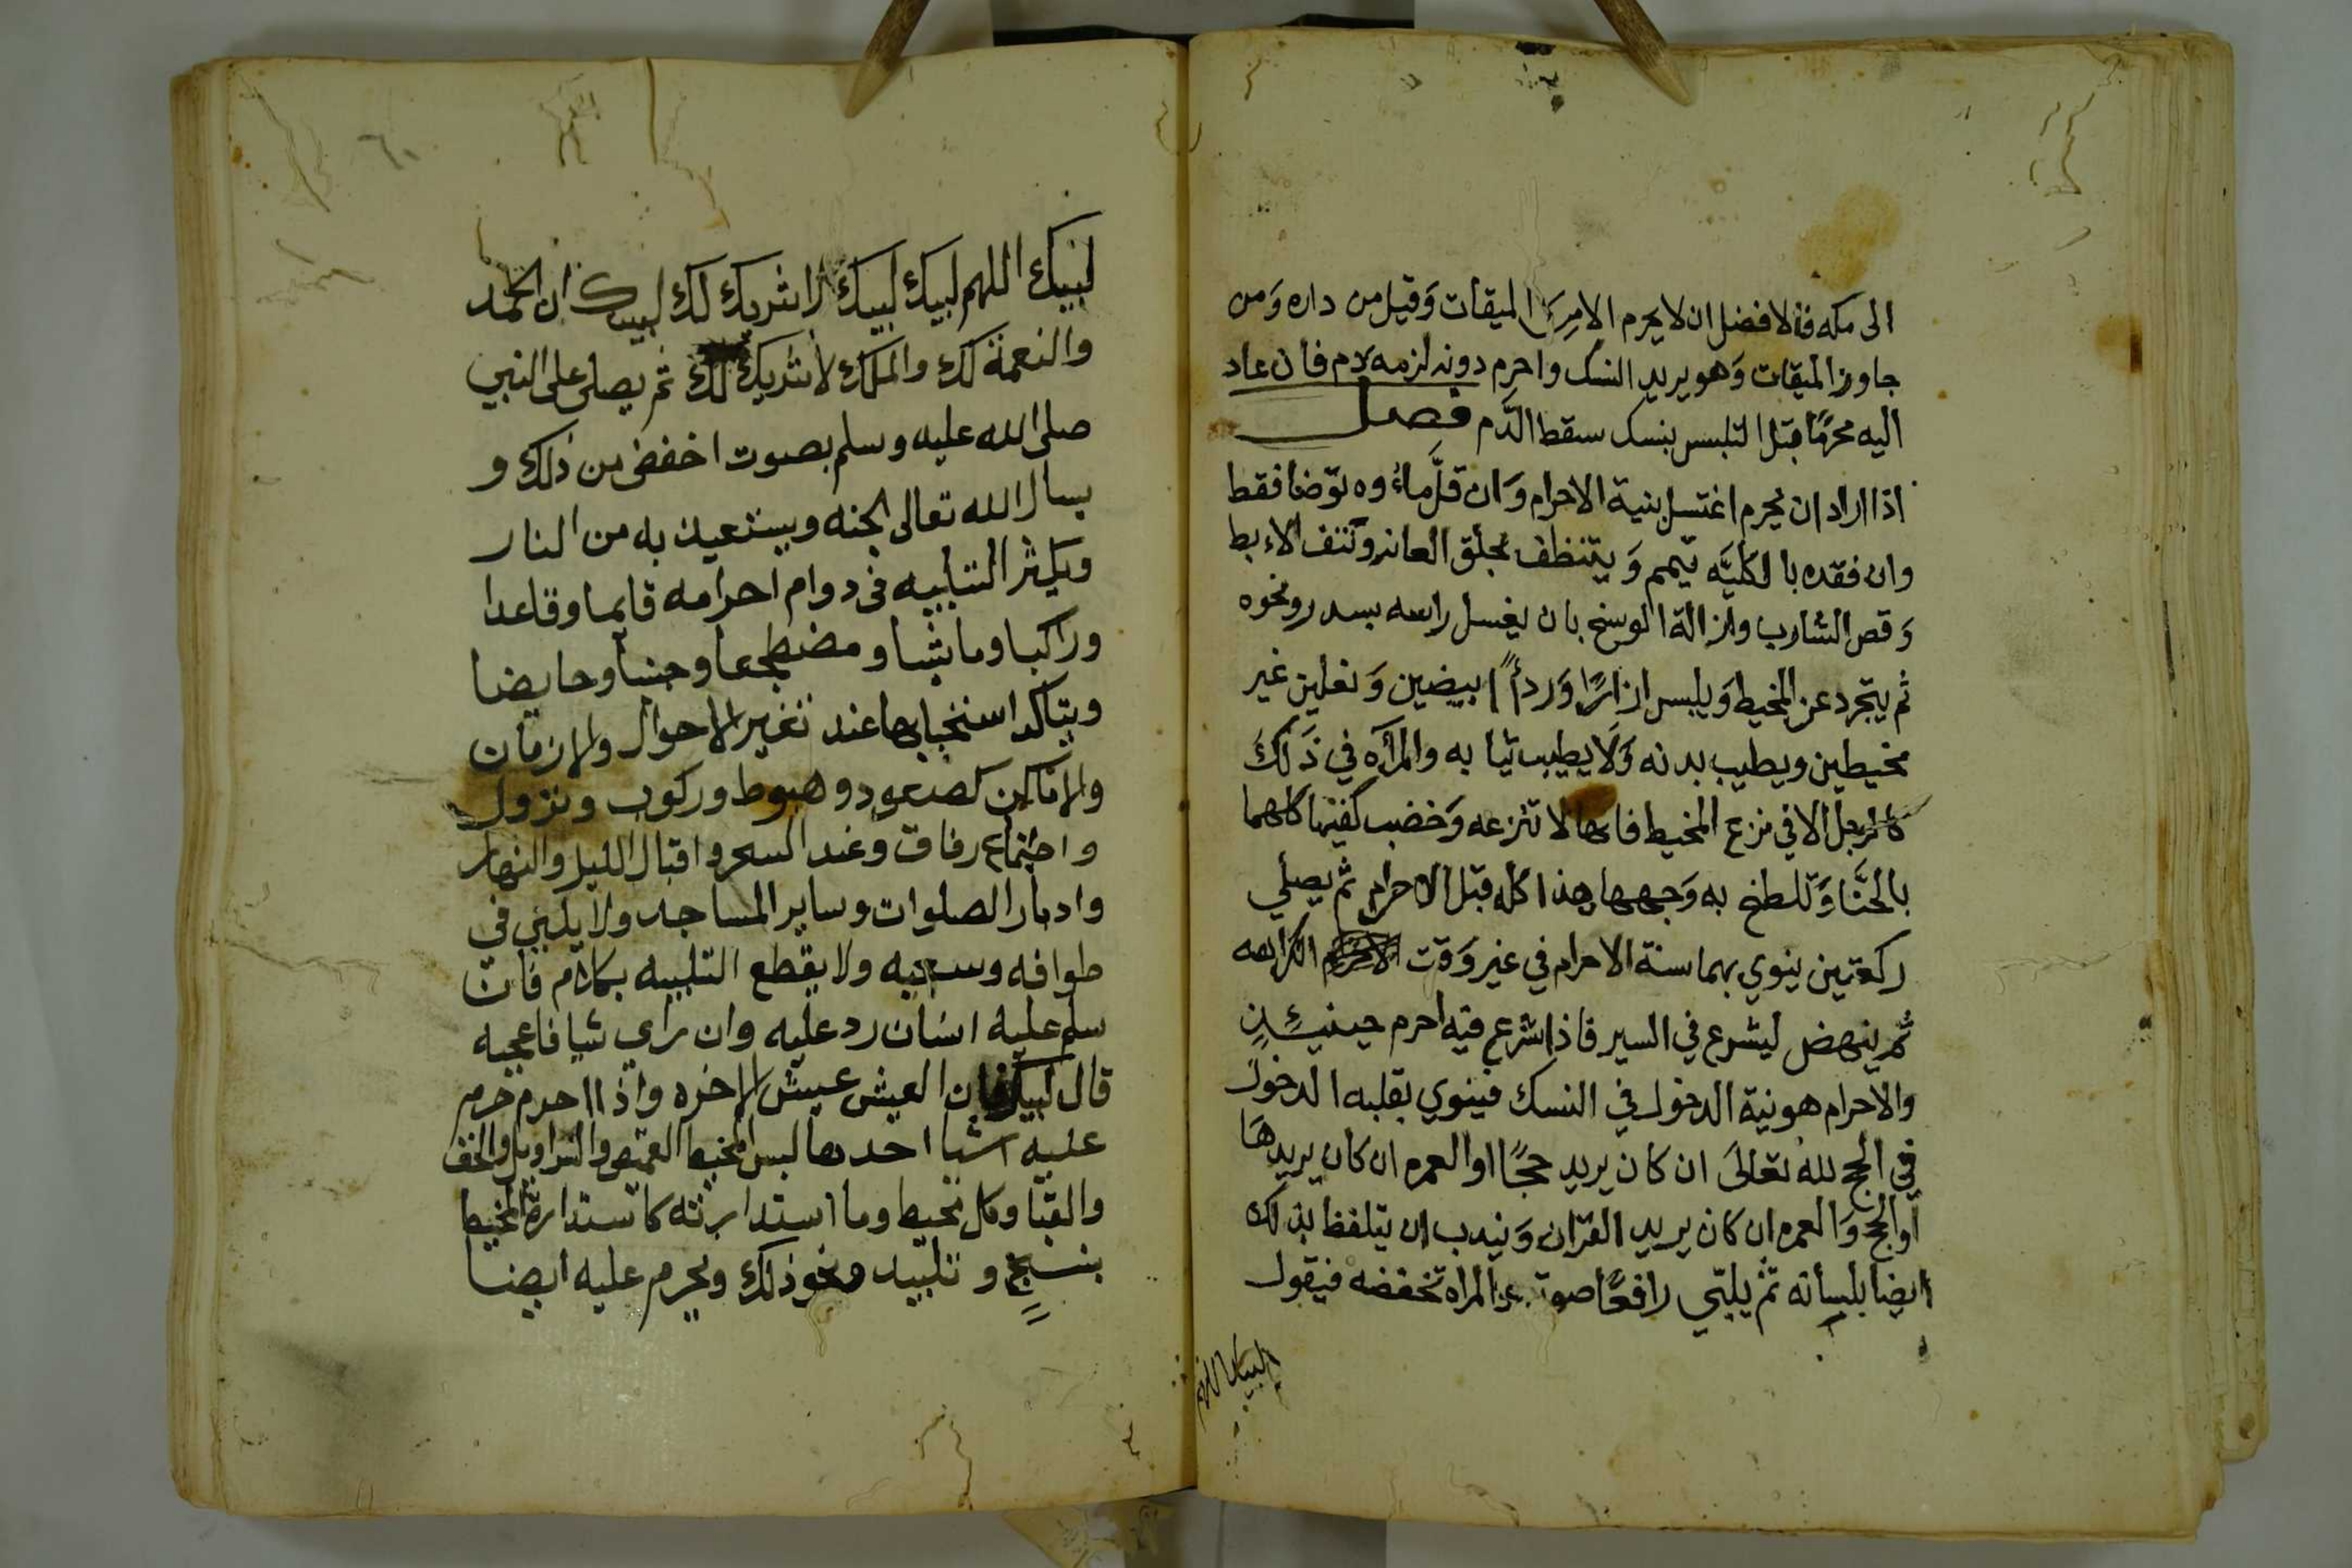 الى مكه فالافضل ان لا يحرم الا من الميقات وَقيل من داره وَمن
جاوز الميقات وَهو يريد النسك واحرم دونه لزمه دم فان عاد
اليه محرمًا قبل التلبس بنسك سقط الدّم فصل
اذا اراد ان يحرم اغتسل بنية الاحرام وَان قلَّ ماءُوه توّضا فقط
وان فقده بالكليَّه تيمم وَيتنظف بحلق العانه وَنتف الاءبط
وَقص الشارب وازالة الوسخ بان يغسل راسه بسدر ونحوه
ثم يتجرد عن المخيط وَيلبس ازارًا وَردأً ابيضين وَنعلين غير
مخيطين ويطيب بدنه وَلَا يطيب ثيابه والمرأَه في ذَلكَ
كالرجل الا في نزع المخيط فانها لا تنزعه وَخضب كفيها كلهما
بالحنَّا وَتلطخ به وَجهها هذا كله قبل الاحرام ثم يصلي
ركعتين ينوي بهما سنة الاحرام في غير وَقت الكراهه
ثم ينهض ليشرع في السير فاذا شرع فيه احرم حينيئذٍ
والاحرام هو نية الدخول في النسك فينوي بقلبه الدخول
في الحج لله تعالىَ ان كان يريد حجًا او العمره ان كان يريدهَا
او الحج وَالعمره ان كان يريد القران وَيندب ان يتلفظ بذلك
ايضا بلسانه ثم يلبّي رافعًا صوته والمراه تخفضه فيقول
لبيك اللهم
٦٠
لبيك اللهم لبيك لبيك لا شريك لك لبيك ان الحمد
والنعمة لك والملك لا شريك لك ثم يصلي على النبي
صلى الله عليه وسلم بصوت اخفض من ذلك و
يسال الله تعالى الجنه ويستعيذ به من النار
ويكثر التلبيه في دوام احرامه قايما وقاعدا
وراكبا وماشيا ومضطجعا وجنبا وحايضا
ويتاكد استحبابها عند تغير الاحوال والازمان
والاماكن كصعود وهبوط وركوب ونزول
واجتماع رفاق وعند السحر واقبال الليل والنهار
وادبار الصلوات وساير المساجد ولا يلبي في
طوافه وسعيه ولا يقطع التلبيه بكلام فان
سلم عليه انسان رد عليه وان راي شيا فاعجبه
قال لبيك ان العيش عيش الاخره واذا احرم حرم
عليه اشيا احدها لبس المخيط القميص والسراويل والخف
والقبا وكل مخيط وما استدارته كاستدارة المخيط
بنسج و تلبيد ونحو ذلك ويحرم عليه ايضا